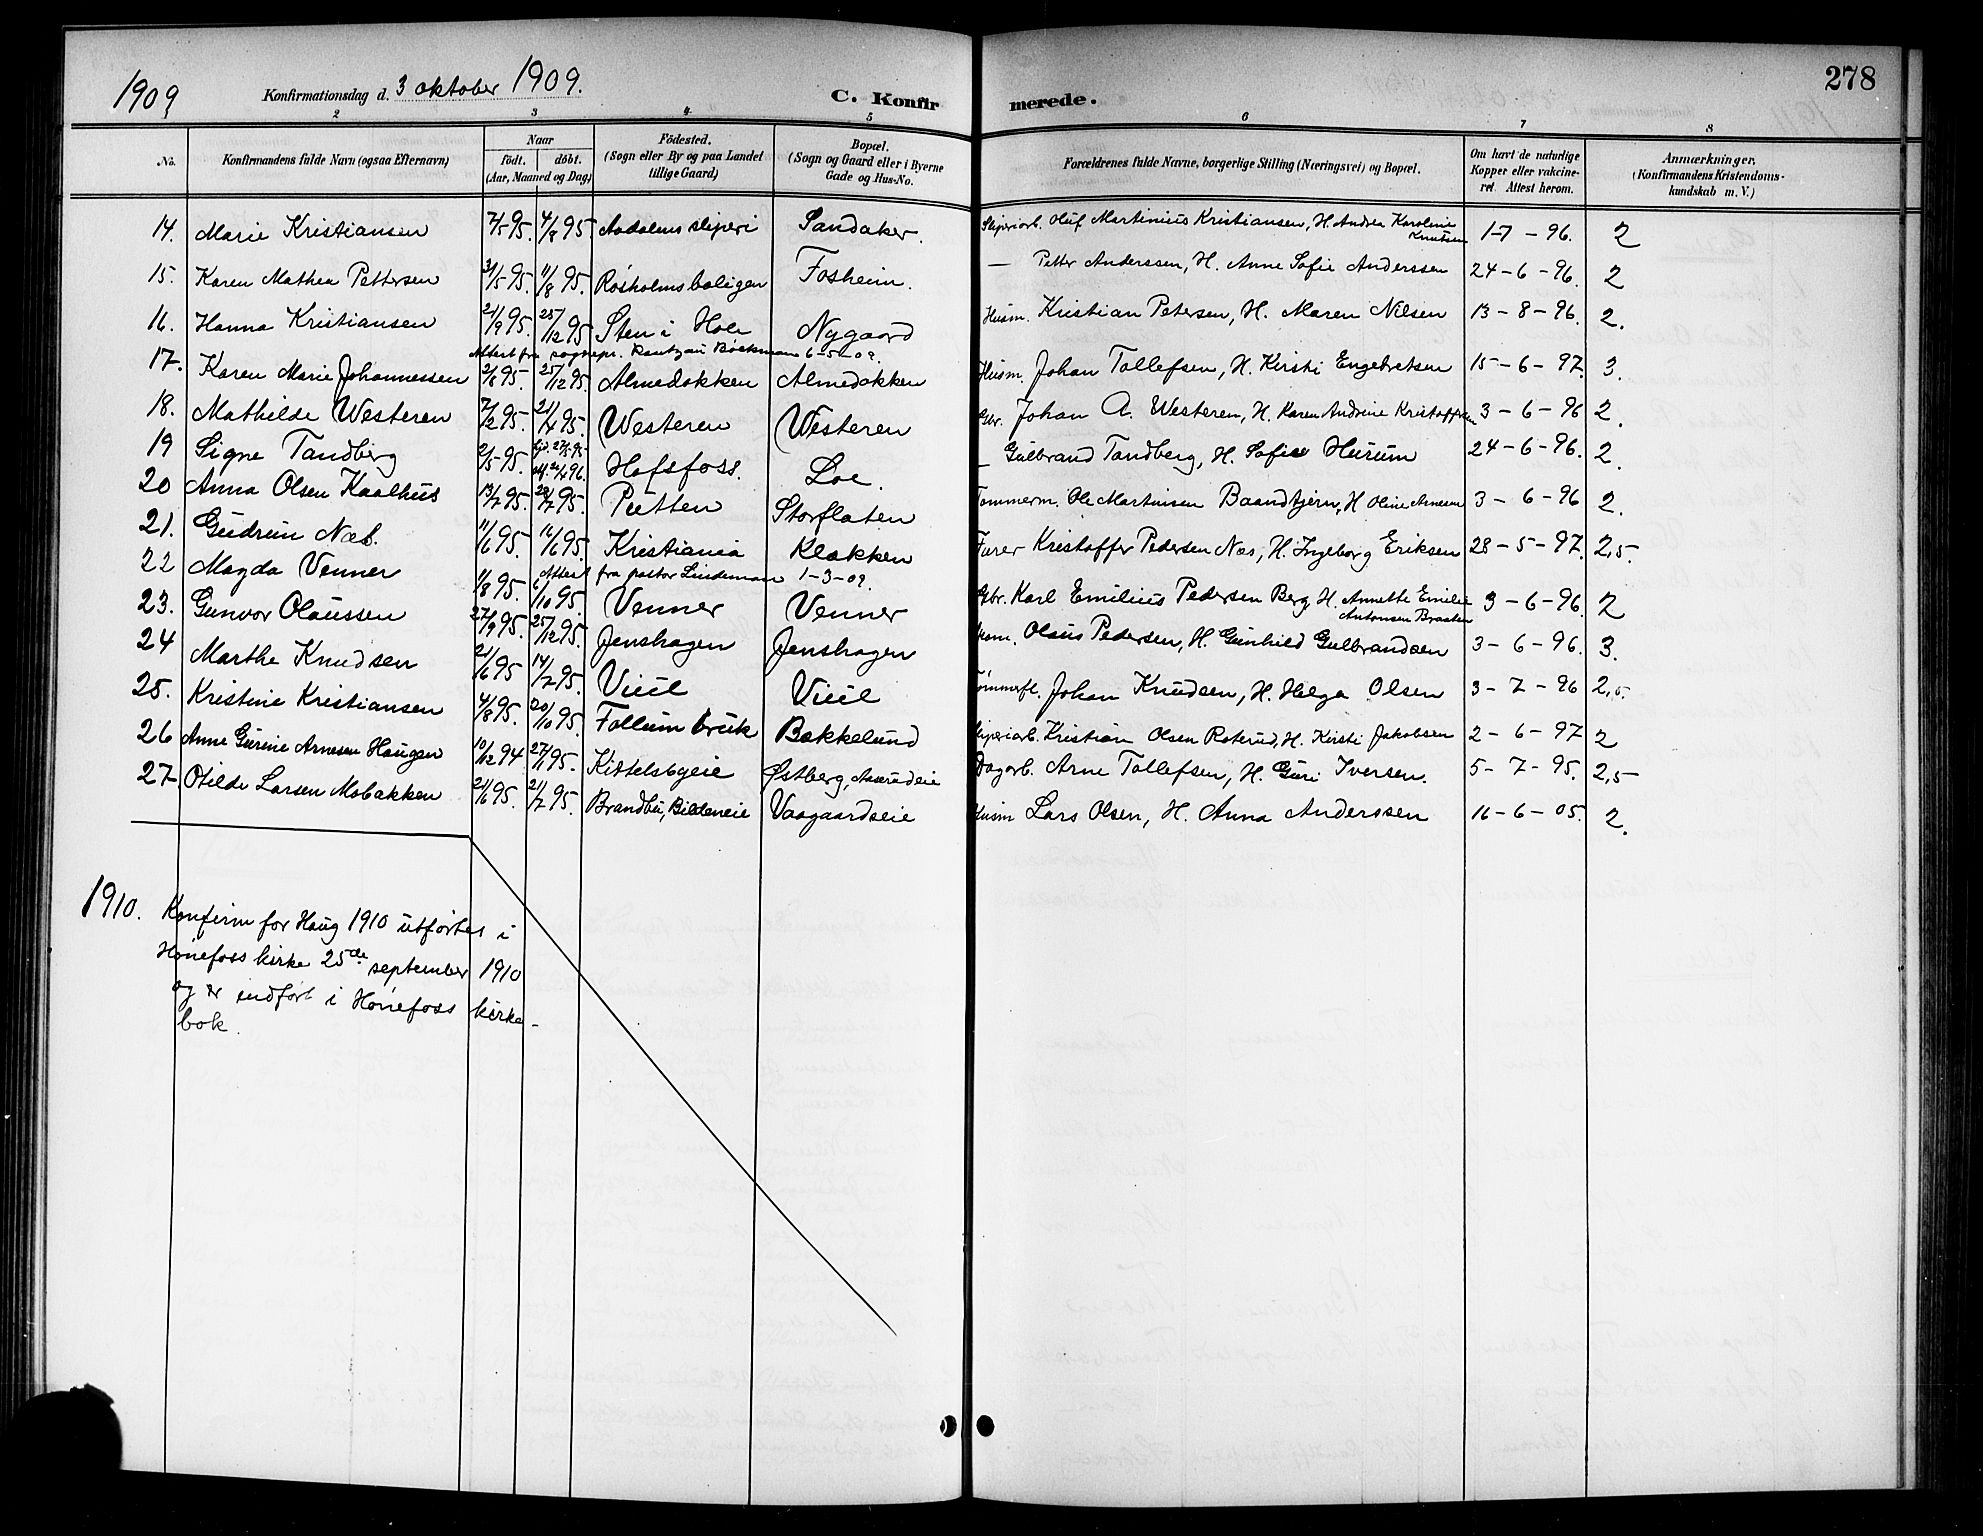 1909 Konfirmationsdag d. 3 oktober 1909. C. Konfirmerede. 278
2 3 4 5 6 7 8
No. Konfirmandens fulde Navn (ogsaa Efternavn) Naar födt. döbt. (Aar, Maaned og Dag) Födested. (Sogn eller By og paa Landet tillige Gaard) Bopæl. (Sogn og Gaard eller i Byerne Gade og Hus-No. Forældrenes fulde Navne, borgerlige Stilling (Næringsvei) og Bopæl. Om havt de naturlige Kopper eller vakcineret. Attest herom. Anmærkninger, (Konfirmandens Kristendomskundskab m. V.)
14. Marie Kristiansen 7/5 95. 4/8 95 Aadalens sliperi Sandaker. Sliperiarb. Oluf Martinius Kristiansen, H. Andrea Karoline Knutsen 1-7-96. 2
15. Karen Mathea Pettersen 31/5 95. 11/8 95. Røsholmsboligen Fosheim. — Petter Anderssen, H. Anne Sofie Anderssen 24-6-96. 2
16. Hanna Kristiansen 21/9 95. 25/12 95 Sten i Hole Nygaard Husm. Kristian Petersen, H. Maren Nilsen 13-8-96. 2.
Attest fra sognepr. Rantzau Bøckman 6-5-09.
17. Karen Marie Johannessen 2/8 95. 25/12 95. Almedokken Almedokken Husm. Johan Tollefsen, H. Kirsti Engebretsen 15-6-97. 3.
18. Mathilde Westeren 7/2 95. 21/4 95. Westeren Westeren Gbr. Johan A. Westeren, H. Karen Andrine Kristoffersen 3-6-96 2.
19 Signe Tandberg 2/5 95. hjd. 27/5 95 off. 26/4 96. Hofsfoss. Loe. — Gulbrand Tandberg, H. Sofie Hurum 24-6-96. 2.
20 Anna Olsen Kaalhus 13/7 95. 28/7 95. Putten Storflaten Tømmerm. Ole Martinsen Baandtjern, H Oline Arnesen 3-6-96 2.
21. Gudrun Næs. 11/6 95. 16/6 95. Kristiania Klækken Furer Kristoffer Pedersen Næs, H. Ingeborg Eriksen 28-5-97. 2,5.
Attest fra pastor Lindeman 1-3-09.
22 Magda Venner 11/8 95. 6/10 95. Venner Venner Gbr. Karl Emilius Pedersen Berg H. Annette Emilie Antonsen Braaten 3-6-96. 2
23. Gunvor Olaussen 27/9 95. 25/12 95. Jenshagen Jenshagen Husm. Olaus Pedersen, H. Gunhild Gulbrandsen 3-6-96. 3.
24 Marthe Knudsen 21/6 95 14/7 95. Viul Viul Tømmerfl. Johan Knudsen, H. Helga Olsen 3-7-96 2,5
25. Kristine Kristiansen 4/8 95. 20/10 95. Follum bruk Bakkelund Sliperiarb. Kristian Olsen Roterud, H. Kirsti Jakobsen 2-6-97 2
26 Anne Gurine Arnesen Haugen 10/12 94 27/1 95. Kittelsbyeie Østberg, Aaserudeie Dagarb. Arne Tollefsen, H. Guri Iversen. 5-7-95. 2,5
27. Otilde Larsen Mobakken 21/6 95. 21/7 95. Brandbu, Bildeneie Vaagaardseie Husm Lars Olsen, H. Anna Anderssen 16-6-05. 2.
1910. Konfirm for Haug 1910 utførtes i
Hønefoss kirke 25de september 1910
og er indført i Hønefoss kirke-
bok.